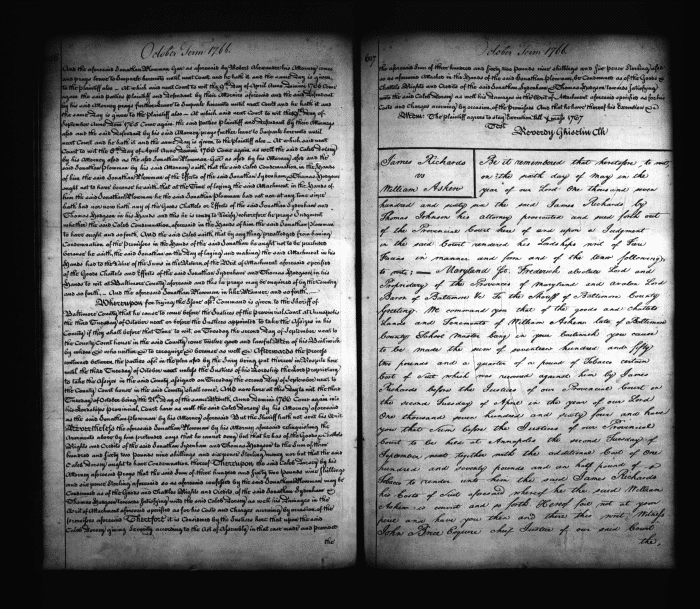 October Term 1766.
And the aforesaid Jonathan Plowman Garr. as aforesaid by Robert Alexander his Attorney comes
and prays leave to Imparle hereunto until next Court and he hath it and the same Day is given
to the plaintiff also — At which said next Court to wit the 9th Day of April Anno Domini 1765 Came
again the said parties Plaintiff and Defendant by their Attornies aforesaid and the said Defendant
by his said Attorney prays further leave to Imparle hereunto until next Court and he hath it and
the same Day is given to the plaintiff also — At which said next Court to wit the Day of
September Anno Domini 1765 Came again the said parties Plaintiff and Defendant by their Attornies
afsd and the said Defendant by his said Attorney prays further leave to Imparle hereunto until
next Court and he hath it and the same Day is given to the plaintiff also — At which said next
Court to wit the Day of April Anno Domini 1766 Came again as well the said Caleb Dorsey by
his Attorney aforesaid as the afsd Jonathan Plowman Garr. as afsd by his Attorney afsd and the
said Jonathan Plowman by his said Attorney saith that the said Caleb Condemnation, in the Hands
of him the said Jonathan Plowman of the Effects of the said Jonathan Sydenham & Thomas Hodgson
ought not to have because he saith that at the Time of laying the said Attachment in the Hands of
him the said Jonathan Plowman he the said Jonathan Plowman had not nor at any time since
hath had nor now hath any of the Goods Chattels or Effects of the said Jonathan Sydenham and
Thomas Hodgson in his Hands and this he is ready to Verify wherefore he prays Judgment
whether the said Caleb Condemnation aforesaid in the Hands of him the said Jonathan Plowman
to have ought and so forth. And the said Caleb saith that by any thing prealledged from having
Condemnation of the Premisses in the Hands of the said Jonathan he ought not to be precluded
because he saith the said Jonathan on the Day of laying and making the said Attachment in his
Hands had to the Value of the Sum in the Return of the Writ of Attachment aforesaid specified
of the Goods Chattels and Effects of the said Jonathan Sydenham and Thomas Hodgson in his
Hands to wit at Baltimore County aforesaid and this he prays may be inquired of by the Country
and so forth — And the aforesaid Jonathan Plowman in like manner and so forth —
Whereupon for trying the Issue afsd Command is given to the Sheriff of
Baltimore County that he cause to come before the Justices of the provincial Court at Annapolis
the third Tuesday of October next or before the Justices appointed to take the Assizes in his
County if they shall before that Time to wit on Tuesday the second Day of September next to
the County Court house in the said County come twelve good and lawful Men of his Bailiwick
by whom & who neither & to recognize & because as well & Afterwards the process
continued between the parties afsd in the plea afsd by the Jury being put thereon in Respite here
until the third Tuesday of October next unless the Justices of his Lordship the Lord proprietary
to take the Assizes in the said County assigned on Tuesday the second Day of September next to
the County Court house in the said County shall come. And now here at this Day to wit the third
Tuesday of October being the 21st Day of the same Month Anno Domini 1766 Come again into
his Lordships Provincial Court here as well the said Caleb Dorsey by his Attorney aforesaid
as the said Jonathan Plowman by his Attorney aforesaid But the Sheriff hath not sent the Writ
Nevertheless the aforesaid Jonathan Plowman by his Attorney aforesaid relinquishing the
Averments above by him pretended says that he cannot deny but that he has of the Goods Chattels
Rights and Credits of the said Jonathan Sydenham and Thomas Hodgson to the Sum of three
hundred and sixty two Pounds nine shillings and six pence Sterling money nor but that the said
Caleb Dorsey ought to have Condemnation thereof Thereupon the said Caleb Dorsey by his
Attorney aforesaid prays that the said Sum of three hundred and sixty two Pounds nine shillings
and six pence Sterling aforesaid so as aforesaid confessed by the said Jonathan Plowman may be
Condemned as of the Goods and Chattles Rights and Credits, of the said Jonathan Sydenham &
Thomas Hodgson towards satisfying unto the said Caleb Dorsey as well his Damages in the
Writ of Attachment aforesaid specified as for his Costs and Charges accruing by occasion of the
premisses aforesaid Therefore it is Considered by the Justices here that upon the said
Caleb Dorsey giving Security according to the Act of Assembly in that case made and provided
the
607
October Term 1766
the aforesaid Sum of three hundred and sixty two pounds nine shillings and six pence Sterling afsd
so as aforesaid Attached in the Hands of the said Jonathan Plowman, be Condemned as of the Goods &
Chattels Rights and Credits of the said Jonathan Sydenham & Thomas Hodgson towards satisfying
unto the said Caleb Dorsey as well his Damages in the Writ of Attachment aforesaid specified as for his
Costs and Charges accruing by occasion of the Premisses And that he have thereof his Execution &
Memo: The plaintiff agrees to stay Execution till 1st 1767
Test
Reverdy Ghiselin Clk
James Richards
vs
William Askew
Be it remembered that heretofore to wit
on the ninth day of May in the
year of our Lord One thousand seven
hundred and sixty six the said James Richards by
Thomas Johnson his attorney prosecuted and sued forth out
of the Provincial Court here of and upon a Judgment
in the said Court rendered his Lordships writ of Fieri
Facias in manner and form and of the tenor following
to wit; — Maryland ss. Frederick absolute Lord and
Proprietary of the Provinces of Maryland and Avalon Lord
Baron of Baltimore &c To the Sheriff of Baltimore County
Greeting. We command you that of the goods and chattels
Lands and Tenements of William Askew late of Baltimore
County School Master being in your bailiwick you cause
to be made the sum of seventeen hundred and fifty
two pounds and a quarter of a pound of Tobacco certain
Cost of suit which were recovered against him by James
Richards before the Justices of our Provincial Court on
the second Tuesday of April in the year of our Lord
One thousand seven hundred and sixty four and have
you that Sum before the Justices of our Provincial
Court to be held at Annapolis the second Tuesday of
September next together with the additional Cost of One
hundred and seventy pounds and an half pound of
Tobacco to render unto him the said James Richards
his Costs of Suit aforesaid whereof he the said William
Askew is convict and so forth Hereof fail not at your
peril and have you then and there this writ. Witness
John Brice Esquire chief Justice of our said Court
the,